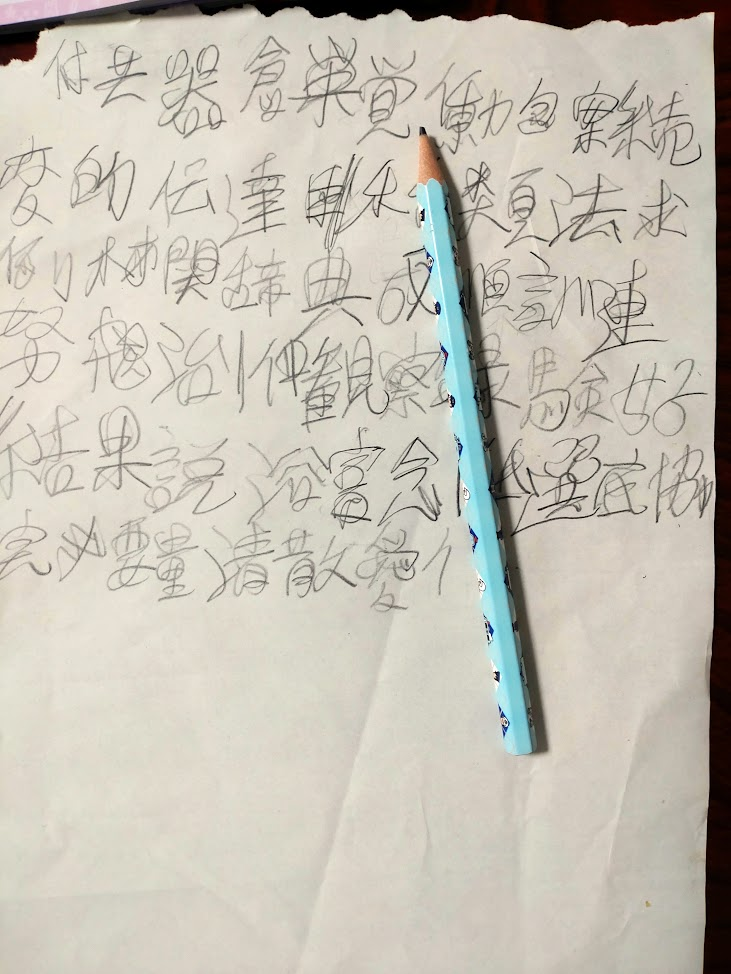 付共器倉巣覚働包案続
変的伝達 末 類法求
例 機関辞典成順訓連
努 治 仲観察録験好
結果説浴富念 選底協
完必要量清散愛